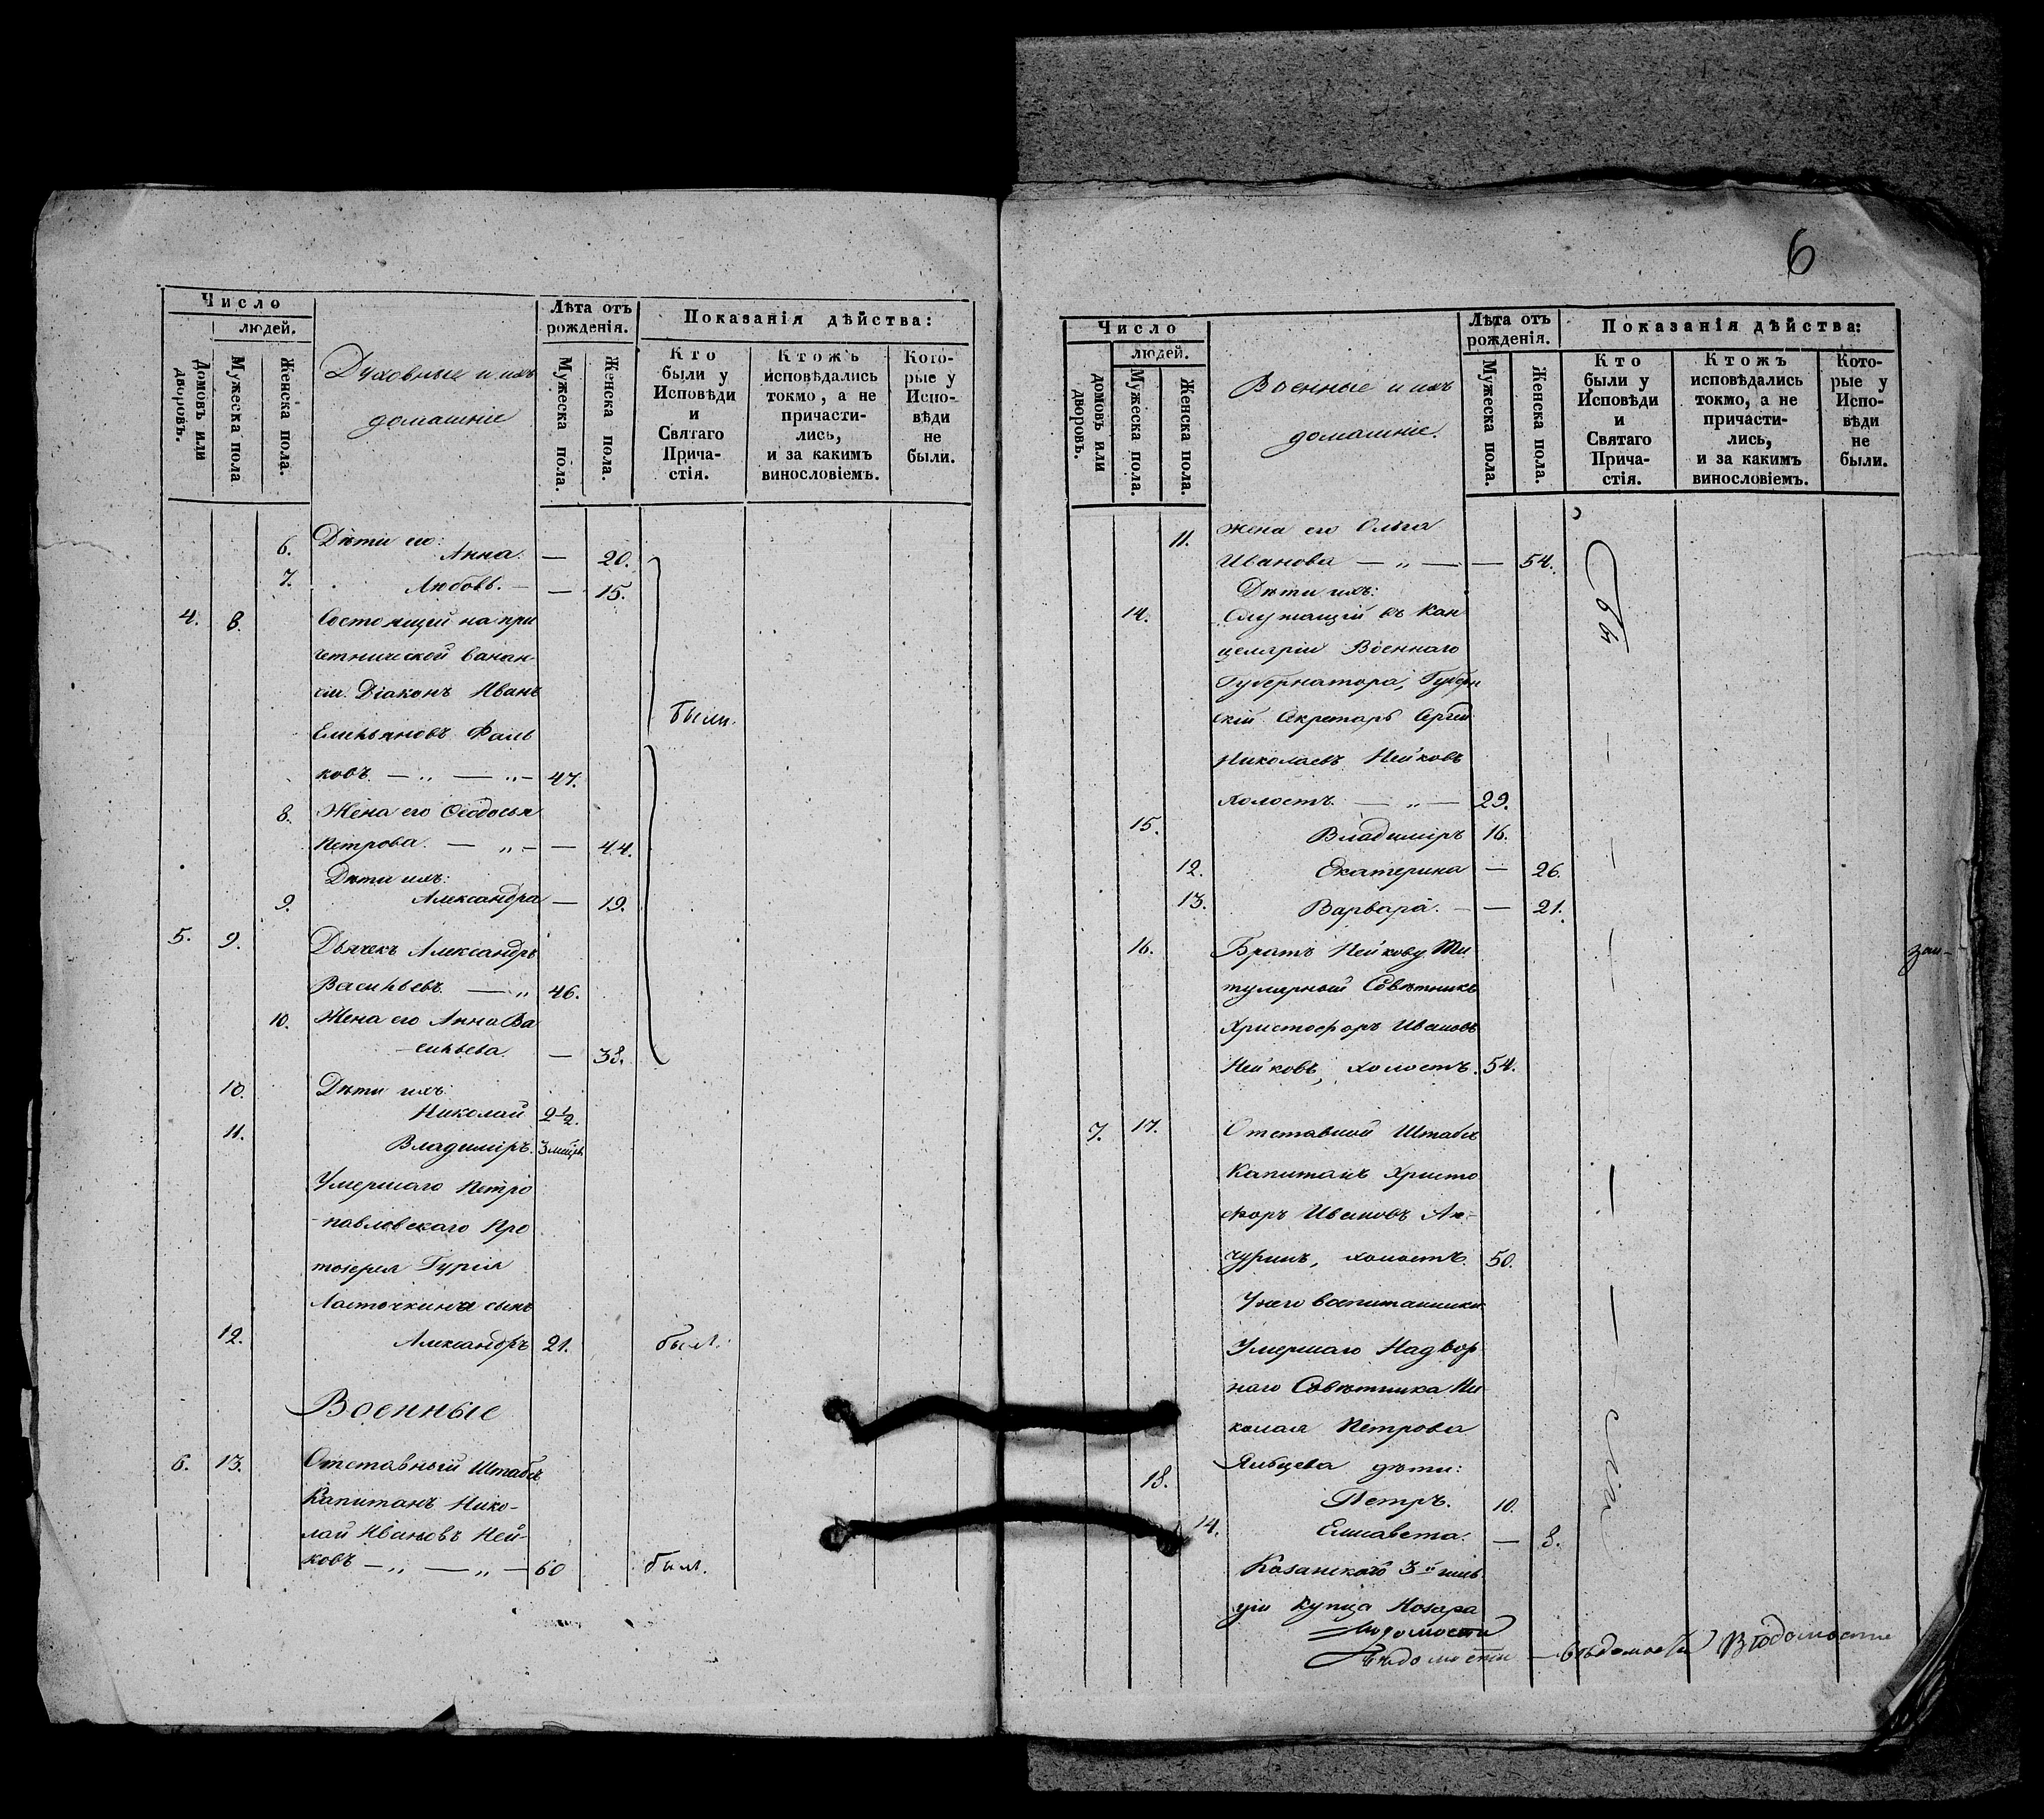 Число
людей.
Домовъ или дворовъ.
Мужеска пола
Женска пола.
Духовные и ихъ
домашніе
Лѣта отъ
рожденія.
Мужеска пола.
Женска пола.
Показанія дѣйства:
Кто
были у
Исповѣди
и
Святаго
Прича-
стія.
Ктожъ
исповѣдались
токмо, а не
причасти-
лись,
и за какимъ
винословіемъ.
Кото-
рые у
Испо-
вѣди
не
были.
Дѣти его:
6. Анна. — 20.
7. Любовь. — — 15.
4. 8. Состоящій на при
четнической вакан-
сіи Діаконъ Иванъ
Емельяновъ Фаль
ковъ — „ — „ — 47.
были.
8. Жена его Ѳеодосья
Петрова. — „ — — 44.
Дѣти ихъ:
9. Александра — 19.
5. 9. Дьячекъ Александръ
Васильевъ. — „ 46.
10. Жена его Анна Ва
сильева. — 38.
10. Дѣти ихъ:
Николай 2½.
11. Владиміръ. 3 мѣсяц.
Умершаго Петро
павловскаго Про
тоіерея Гурія
Ласточкина сынъ
12. Александръ 21. былъ.
Военные
6. 13. Отставный Штабсъ
Капитанъ Нико-
лай Ивановъ Ней-
ковъ — „ — „ — 60 былъ.
6
Число
людей.
домовъ или дворовъ.
Мужеска пола.
Женска пола.
Военные и ихъ
домашніе.
Лѣта отъ
рожденія.
Мужеска пола.
Женска пола.
Показанія дѣйства:
Кто
были у
Исповѣди
и
Святаго
Прича-
стія.
Ктожъ
исповѣдались
токмо, а не
причасти-
лись,
и за какимъ
винословіемъ.
Кото-
рые у
Испо-
вѣди
не
были.
11. Жена его Ольга
Иванова — „ — — 54.
Дѣти ихъ:
14. Служащій въ Кан
целяріи Военнаго
Губернатора, Губерн
скій Секретарь Сергей
Николаевъ Нейковъ
холостъ. — „ — 29.
15. Владиміръ 16.
12. Екатерина — 26.
13. Варвара. — — 21.
16. Братъ Нейкову Ти
тулярный Совѣтникъ
Христофоръ Ивановъ
Нейковъ, холостъ. 54.
7. 17. Отставной Штабсъ
Капитанъ Христо
форъ Ивановъ Ан-
чуринъ, холостъ. 50.
У него воспитанники
Умершаго Надвор
наго Совѣтника Ни
колая Петрова
Яльцева дѣти:
18. Петръ. 10.
14. Елисавета. — 8.
Казанскаго 3й гиль
діи купца Назара
Ведомости
Вѣдомости — вѣдомости Вѣдомости